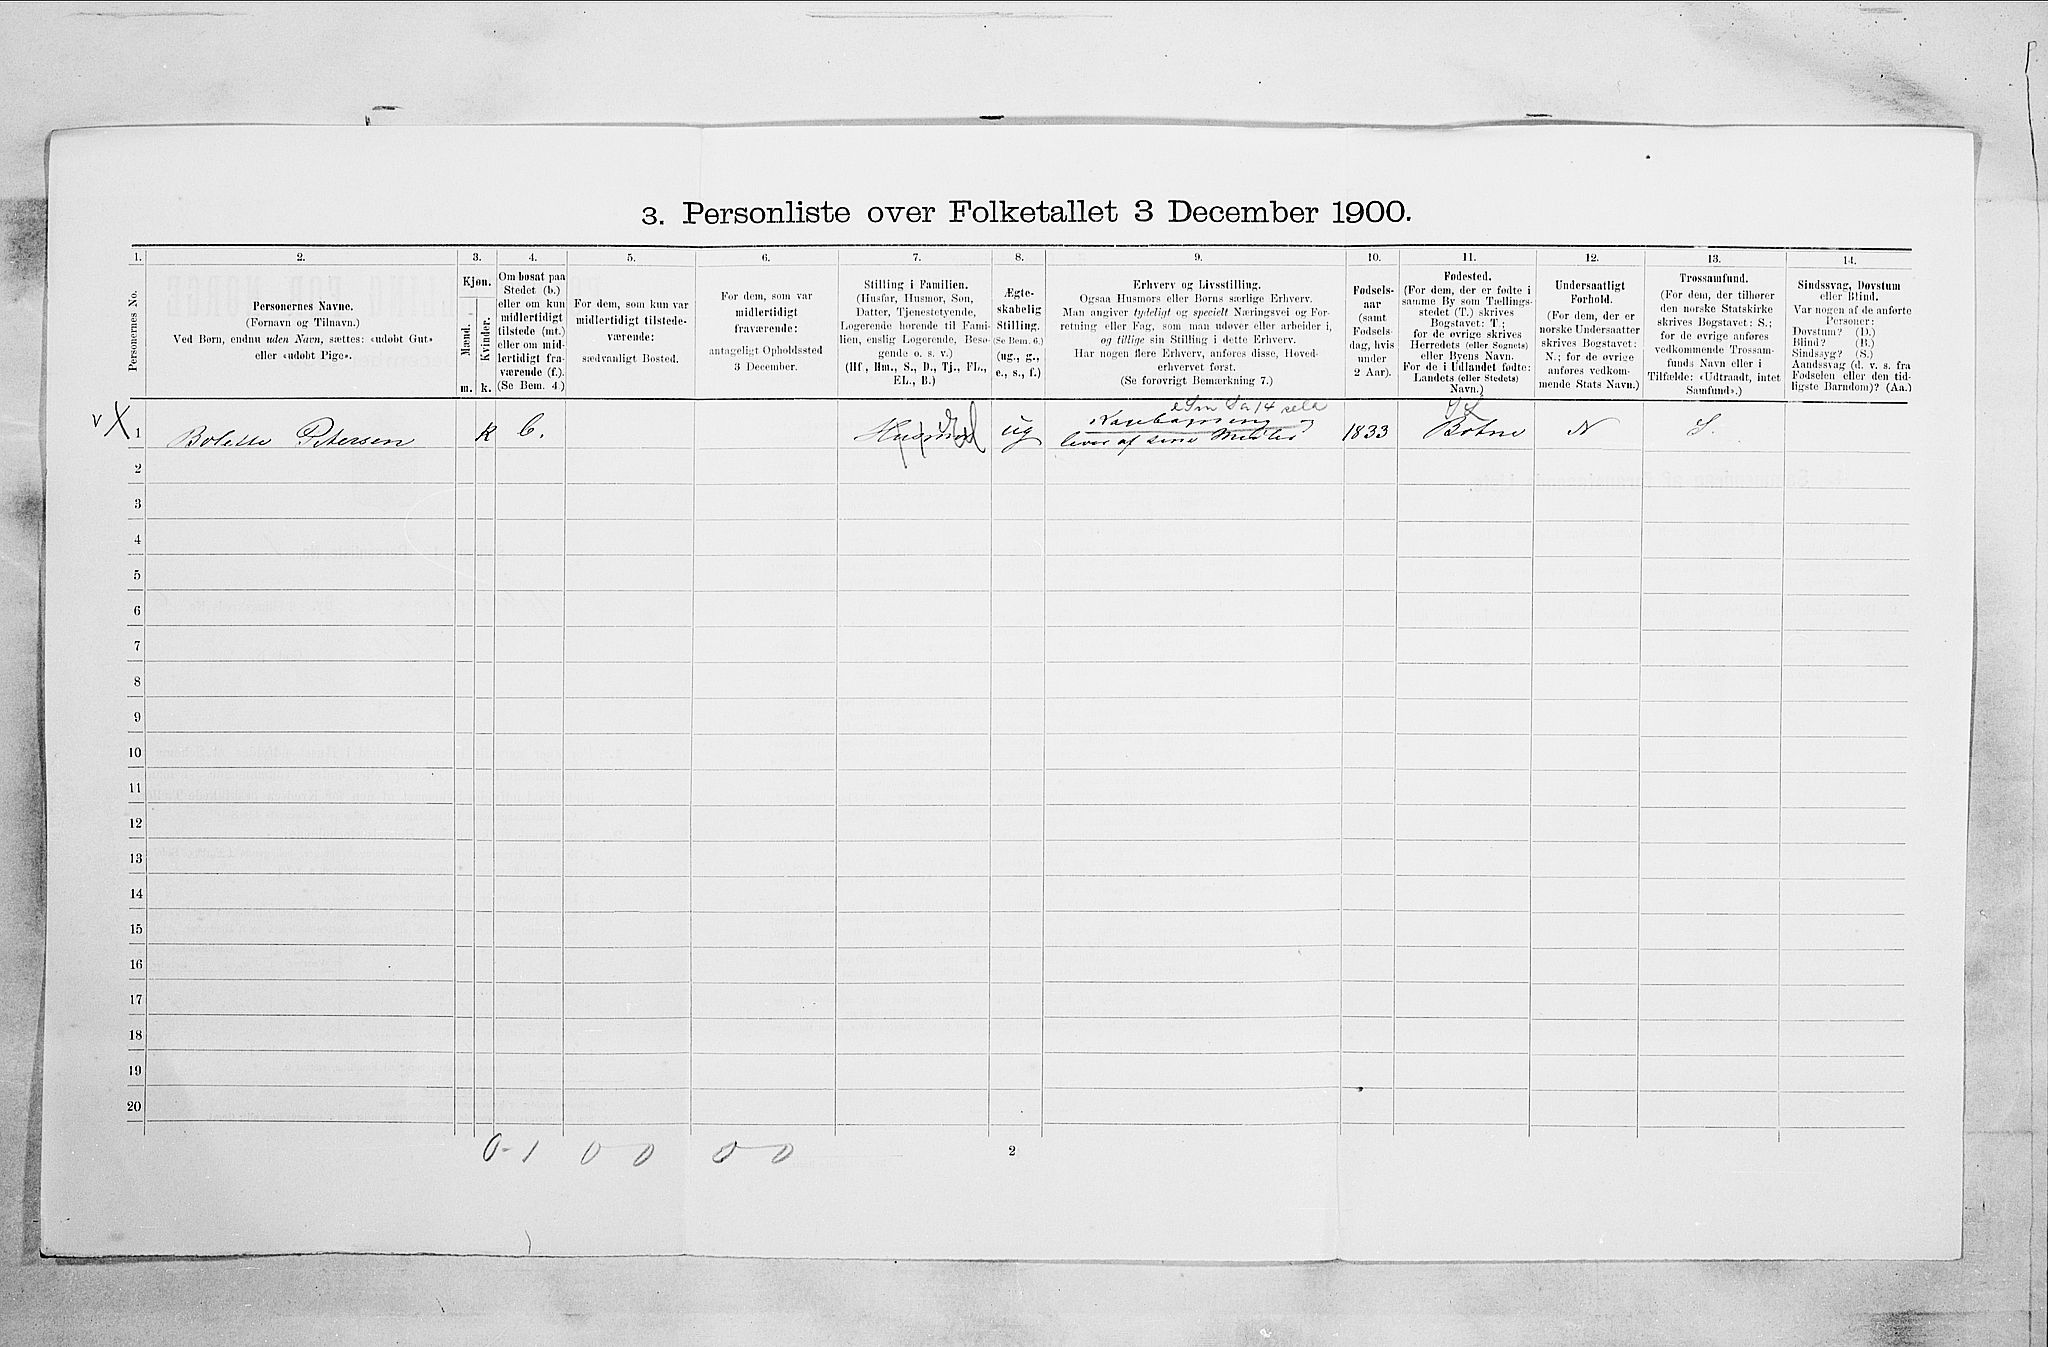 3. Personliste over Folketallet 3 December 1900.
1.
2.
3.
4.
5.
6.
7.
8.
9.
10.
11.
12.
13.
14.
Personernes No.
Personernes Navne.
(Fornavn og Tilnavn.)
Ved Børn, endnu uden Navn, sættes: «udøbt Gut»
eller «udøbt Pige».
Kjøn.
Mænd.
Kvinder.
m.
k.
Om bosat paa
Stedet (b.)
eller om kun
midlertidigt
tilstede (mt.)
eller om mid-
lertidigt fra-
værende (f.).
(Se Bem. 4.)
For dem, som kun var
midlertidigt tilstede-
værende:
sædvanligt Bosted.
For dem, som var
midlertidigt
fraværende:
antageligt Opholdssted
3 December.
Stilling i Familien.
(Husfar, Husmor, Søn,
Datter, Tjenestetyende,
Logerende hørende til Fami-
lien, enslig Logerende, Besø-
gende o. s. v.)
(Hf., Hm., S., D., Tj., FL.,
EL., B.)
Ægte-
skabelig
Stilling.
(Se Bem. 6.)
(ug., g.,
e., s., f.)
Erhverv og Livsstilling.
Ogsaa Husmors eller Børns særlige Erhverv.
Man angiver tydeligt og specielt Næringsvei og For-
retning eller Fag, som man udøver eller arbeider i,
og tillige sin Stilling i dette Erhverv.
Har nogen flere Erhverv, anføres disse, Hoved-
erhvervet først.
(Se forøvrigt Bemærkning 7.)
Fødsels-
aar
(samt
Fødsels-
dag, hvis
under
2 Aar).
Fødested.
(For dem, der er fødte i
samme By som Tællings-
stedet (T.) skrives
Bogstavet: T.;
for de øvrige skrives
Herredets (eller Sognets)
eller Byens Navn.
For de i Udlandet fødte:
Landets (eller Stedets)
Navn.)
Undersaatligt
Forhold.
(For dem, der er
norske Undersaatter
skrives Bogstavet:
N.; for de øvrige
anføres vedkom-
mende Stats Navn.)
Trossamfund.
(For dem, der tilhører
den norske Statskirke
skrives Bogstavet: S.;
for de øvrige anføres
vedkommende Trossam-
funds Navn eller i
Tilfælde: «Udtraadt, intet
Samfund».)
Sindssvag, Døvstum
eller Blind.
Var nogen af de anførte
Personer:
Døvstum? (D.)
Blind? (B.)
Sindssyg? (S.)
Aandssvag (d. v. s. fra
Fødselen eller den tid-
ligste Barndom)? (Aa.)
v X 1 Bolette Petersen k b. Husmor ug
lever af sine Midler 1833 Botne N S.
2
3
4
5
6
7
8
9
10
11
12
13
14
15
16
17
18
19
20
0-1 0 0 0 0
2